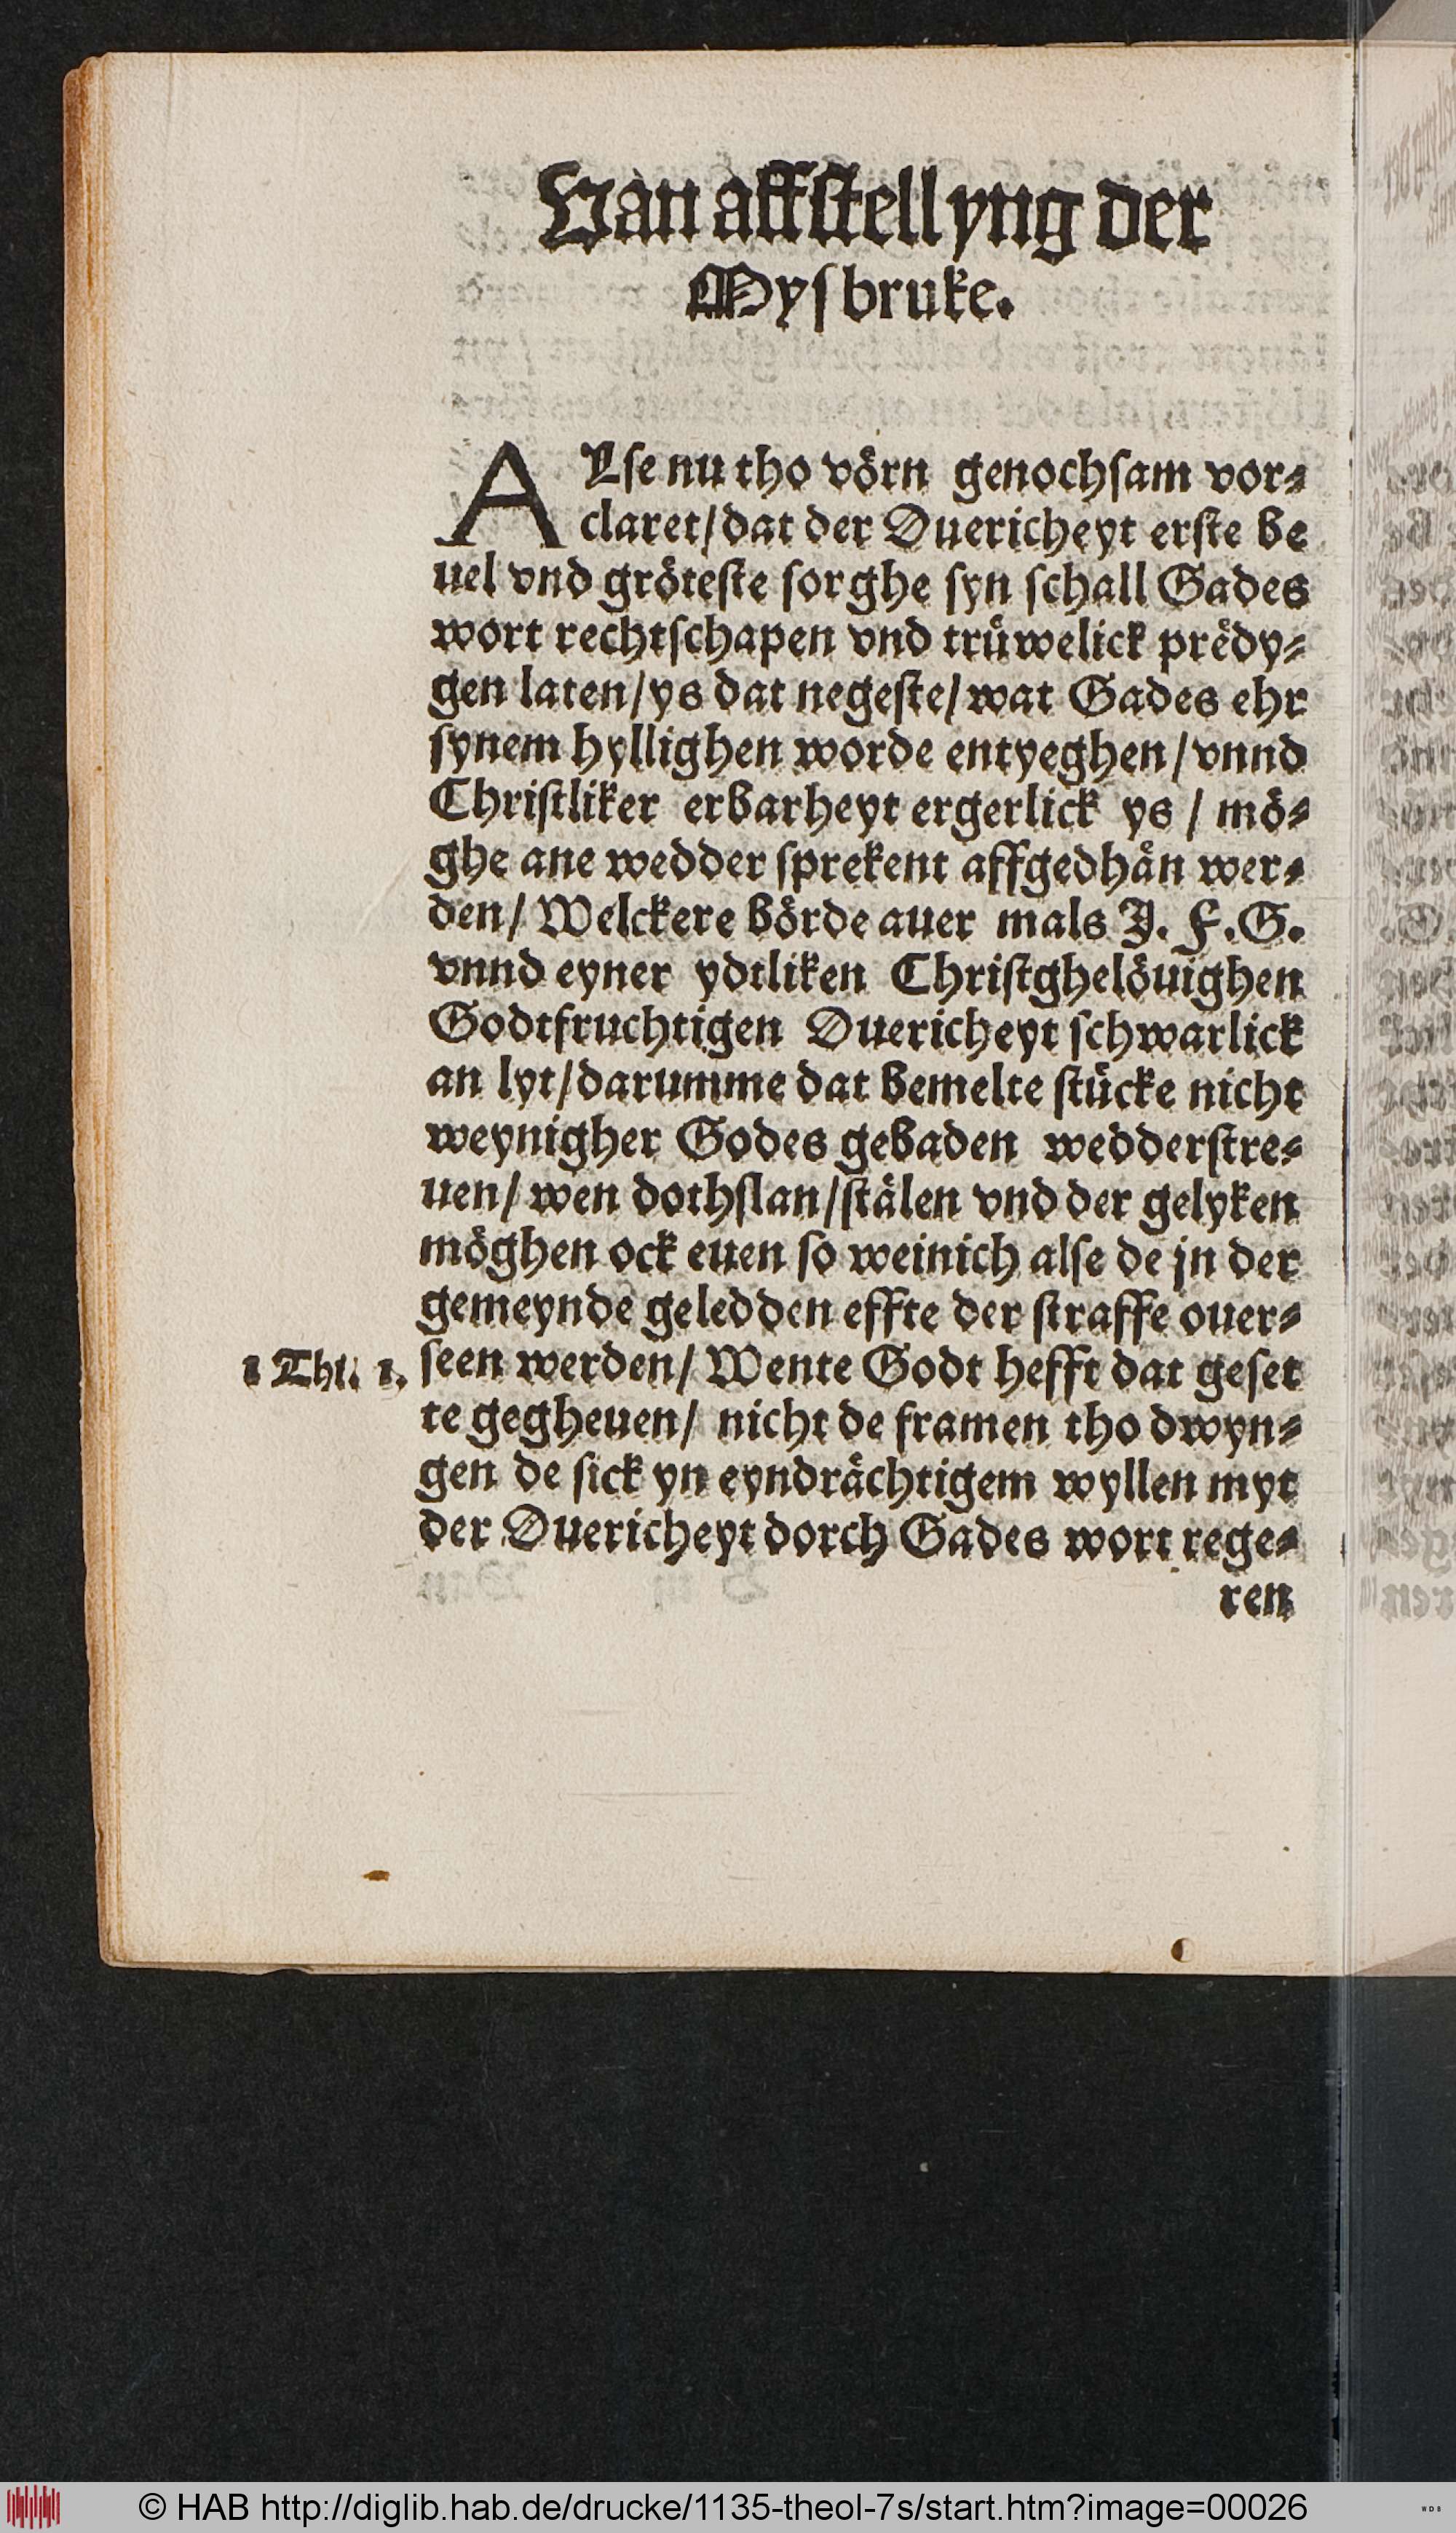 Van affstellyng der
Mysbruke.
ALſe nu tho voͤrn genochſam vor⸗
claret/dat der Ouericheyt erſte be
uel vnd groͤteſte ſorghe ſyn ſchall Gades
wort rechtſchapen vnd truͤwelick preͤdy⸗
gen laten/ys dat negeſte/wat Gades ehr
ſynem hyllighen worde entyeghen/vnnd
Chriſtliker erbarheyt ergerlick ys / moͤ⸗
ghe ane wedder ſprekent affgedhaͤn wer⸗
den/ Welckere boͤrde auer mals J. F.G.
vnnd eyner ydtliken Chriſtgheloͤuighen
Godtfruchtigen Ouericheyt ſchwarlick
an lyt/darumme dat bemelte ſtuͤcke nicht
weynigher Godes gebaden wedderſtre⸗
uen/ wen dothſlan/ſtaͤlen vnd der gelyken
moͤghen ock euen ſo weinich alſe de jn der
gemeynde geledden effte der ſtraffe ouer⸗
1 Thi. 1. ſeen werden/ Wente Godt hefft dat geſet
te gegheuen/ nicht de framen tho dwyn⸗
gen de ſick yn eyndraͤchtigem wyllen myt
der Ouericheyt dorch Gades wort rege⸗
ren
© HAB http://diglib.hab.de/drucke/1135-theol-7s/start.htm?image=00026